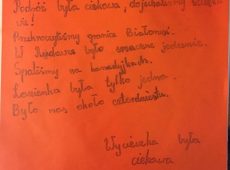 Podróż była ciekawa, dojechaliśmy
Przekroczyliśmy granicę Białorusi.
W było smaczne jedzenie.
Spaliśmy na kanadyjkach.
Łazienka była tylko jedna.
Było nas około czterdziestu.
Wycieczka była
ciekawa